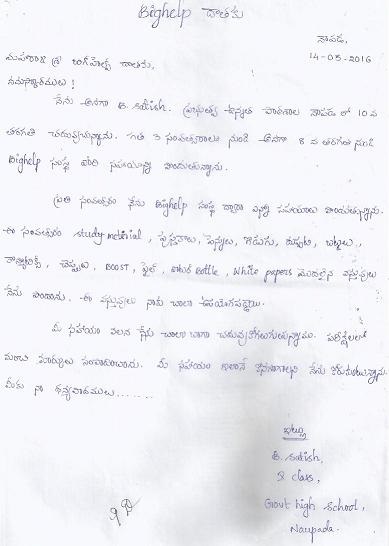 Bighelp దాతకు
నౌపడ,
14-05-2016
మహారాజశ్రీ బిగ్‌హెల్ప్ దాతకు,
నమస్కారములు !
నేను అనగా B. satish. ప్రభుత్వ ఉన్నత పాఠశాల నౌపడ లో 10 వ
తరగతి చదువుచున్నాను. గత 3 సంవత్సరాలు నుండి అనగా 8 వ తరగతి నుండి
Bighelp సంస్థ వారి సహాయాన్ని పొందుతున్నాను.
ప్రతి సంవత్సరం నేను Bighelp సంస్థ ద్వారా ఎన్నో సహాయాలు పొందుతున్నాను.
ఈ సంవత్సరం study meterial , పుస్తకాలు, పెన్నులు, గొడుగు, దుప్పటి, బట్టలు,
, చెప్పులు, BOOST, ప్లేట్, వాటర్ Bottle, White papers మొదలైన వస్తువులు
నేను పొందాను. ఈ వస్తువులు నాకు చాలా ఉపయోగపడ్డాయి.
మీ సహాయం వలన నేను చాలా బాగా చదువుకోగలుగుతున్నాను. పరీక్షలలో
మంచి మార్కులు సంపాదించాను. మీ సహాయం ఇలానే కొనసాగాలని నేను కోరుకుంటున్నాను.
మీకు నా ధన్యవాదములు.......
ఇట్లు
B. satish,
class,
Govt high school,
Naupada.